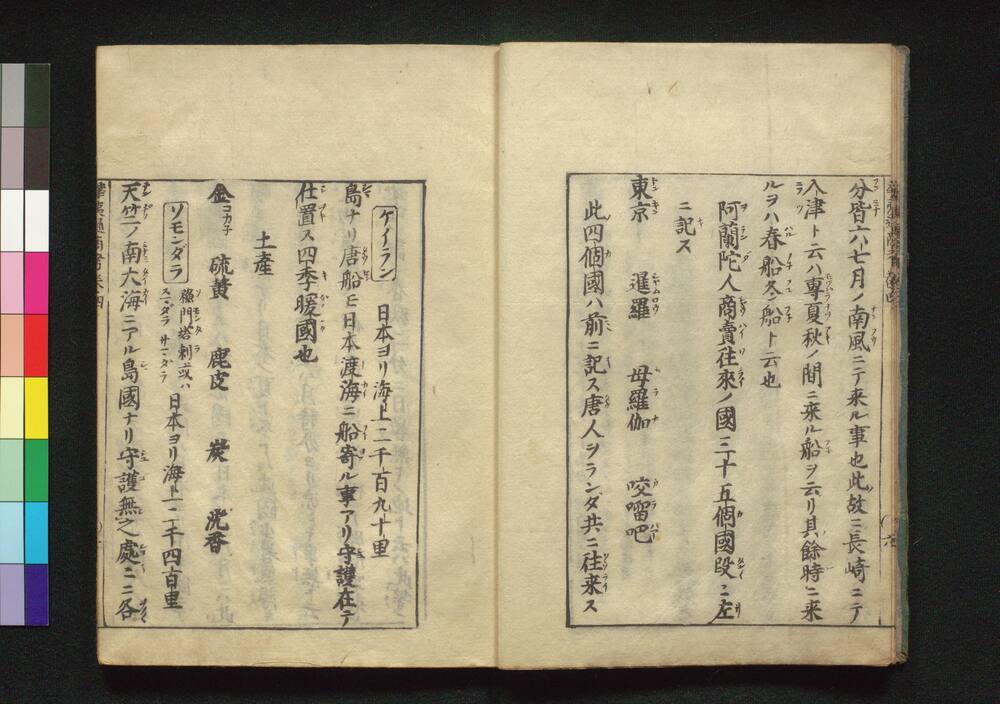 分皆六七月ノ南風ニテ来ル事也此故ニ長崎ニテ
入津ト云ハ専夏秋ノ間ニ来ル船ヲ云リ其餘時ニ来
ルヲハ春船冬船ト云也
阿蘭陀人商賣往來ノ國三十五個國段々左
ニ記ス
東京 暹羅 母羅伽 咬𠺕吧
此四個國ハ前ニ記ス唐人ヲランダ共ニ往来ス
ケイラン 日本ヨリ海上二千百九十里
島ナリ唐船モ日本渡海ニ船寄ル事アリ守護在テ
仕置ス四季暖國也
土産
金 硫黄 鹿皮 炭
ソモンダラ 日本ヨリ海上二千四百里
天竺ノ南大海ニアル島國ナリ守護無之處々ニ各